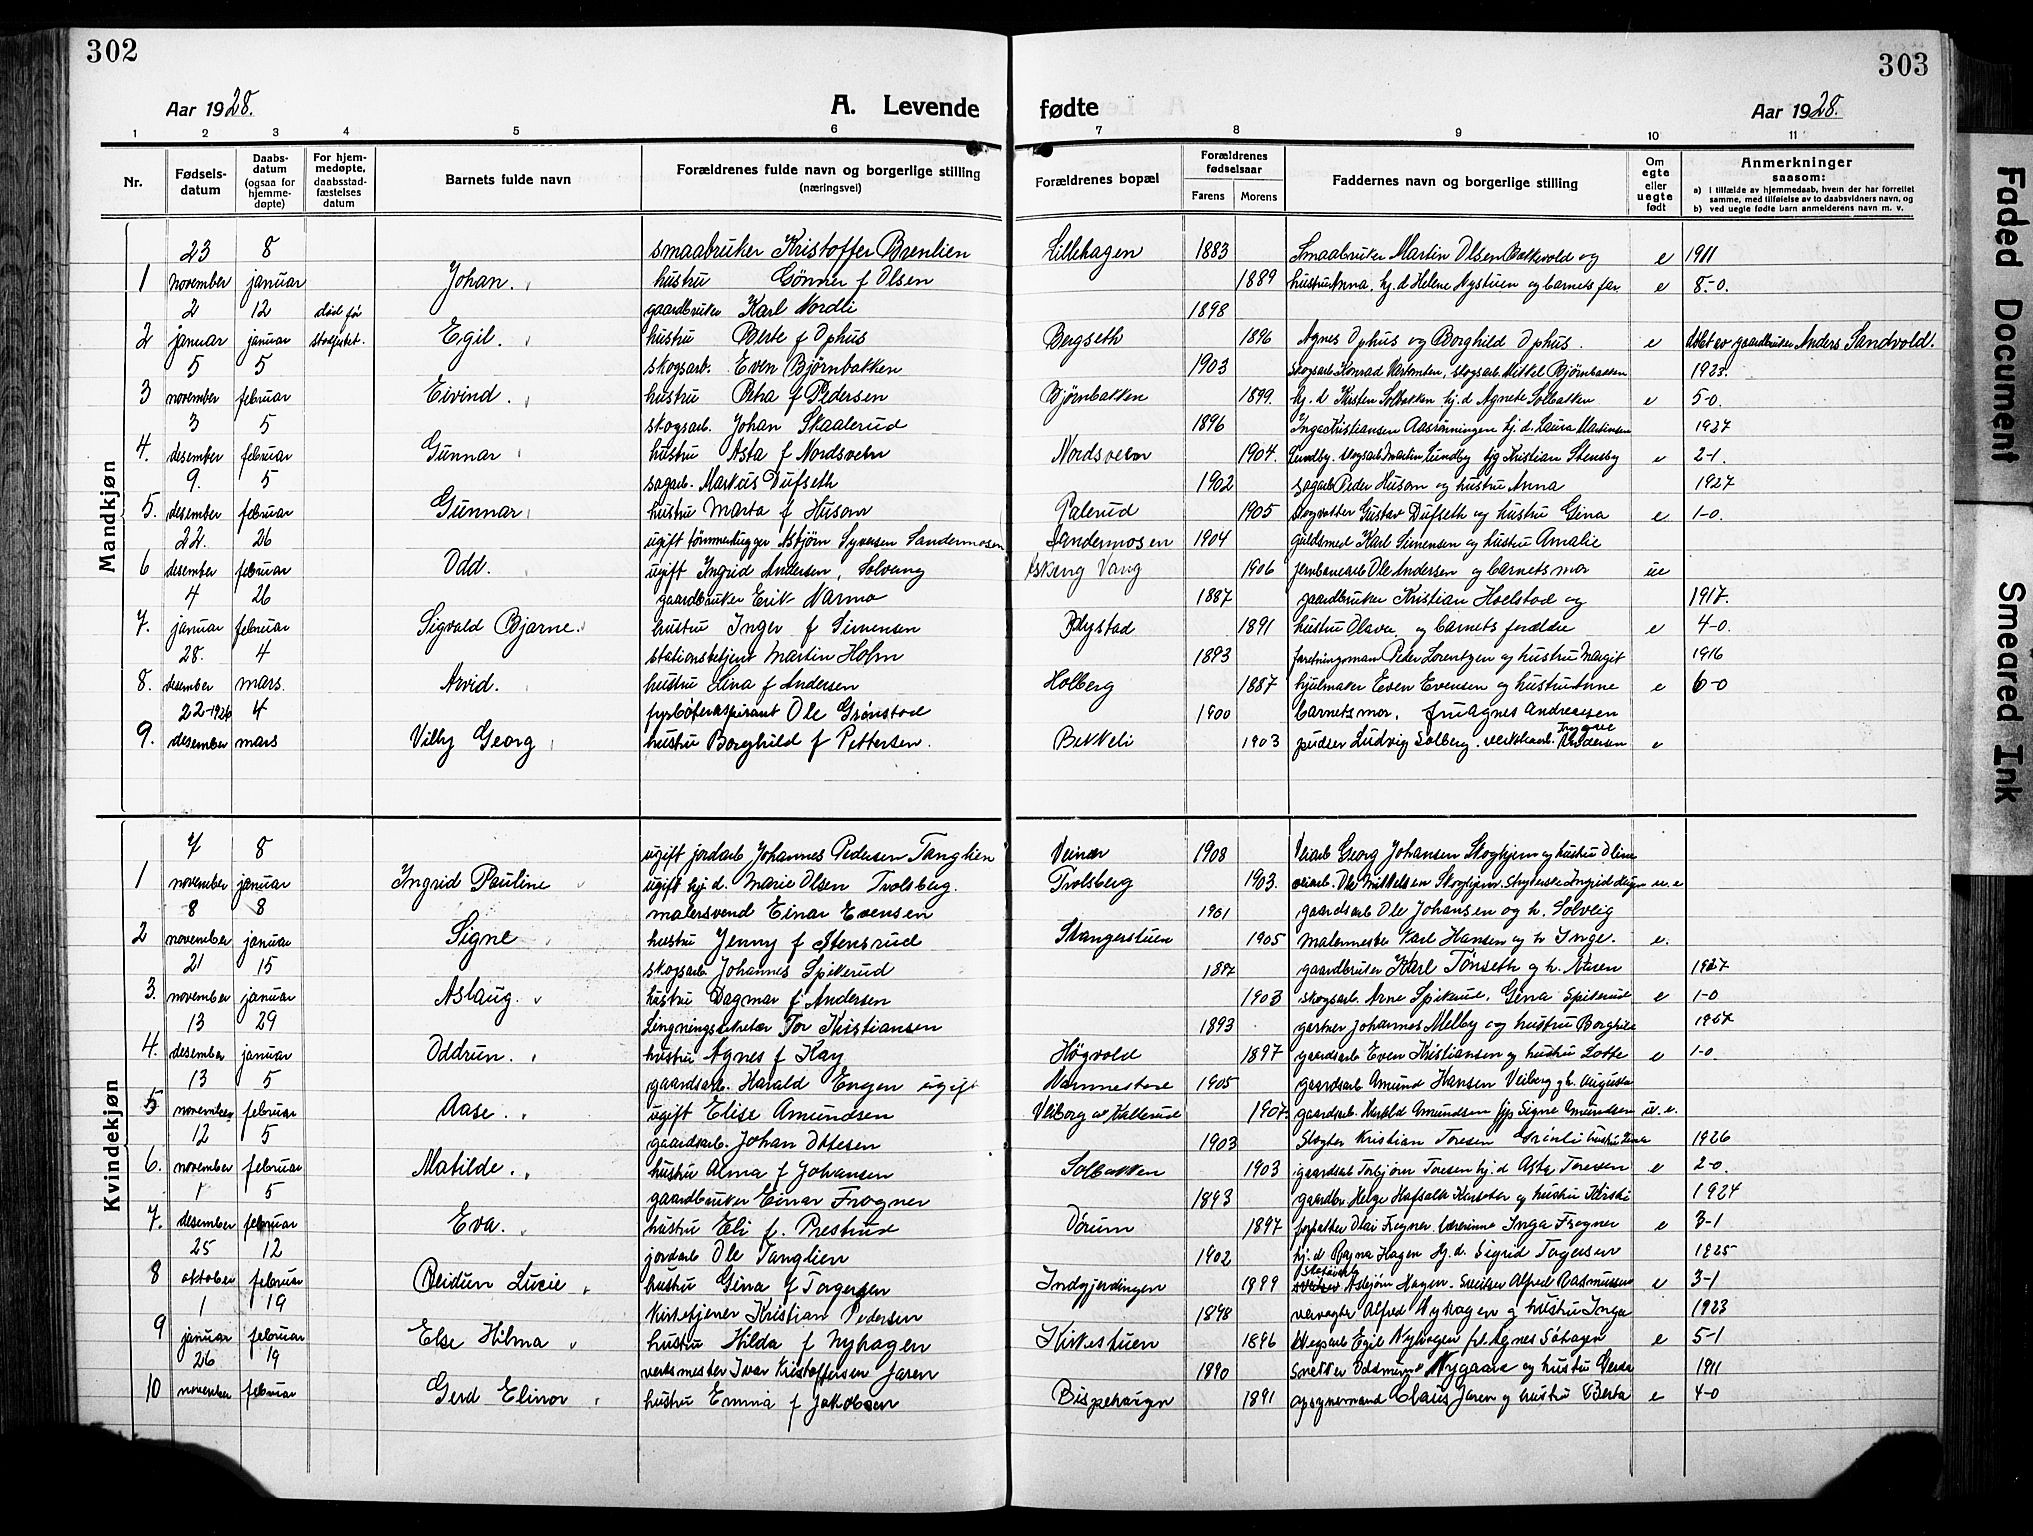 302
Aar 1928.
A. Levende
1 2 3 4 5 6
Nr.
Fødsels-
datum
Daabs-
datum
(ogsaa for
hjemme-
døpte)
For hjem-
medøpte,
daabsstad-
fæstelses
datum
Barnets fulde navn
Forældrenes fulde navn og borgerlige stilling
(næringsvei)
Mandkjøn
23 8 smaabruker Kristoffer Brenlien
1 november januar Johan. hustru Gönner f Olsen
2 12 død før gaardbruker Karl Nordli
2 januar januar Egil. hustru Berte f Ophus
5 5 skogsarb. Even Bjørnbakken
3 november februar Eivind. hustru f Pedersen
3 5 skogsarb. Johan Skaalerud
4. desember februar Gunnar hustru Asta f Nordsveen
9. 5 sagarb. Markus Dufseth
5. desember februar Gunnar hustru Marta f Husom
22. 26 ugift tømmerhugger Asbjørn Syversen Sandermosen
6 desember februar Odd. ugift Ingrid Andersen, Solvang
4 26 gaardbruker Erik Narmo
7. januar februar Sigvald Bjarne. hustru Inger f Simensen
28. 4 stationsbetjent Martin Holm
8. desember mars. Arvid. hustru Lina f Andersen
22-1926 4 fyrbøteraspirant Ole Grønstad
9. desember mars Villy Georg hustru Borghild f Pettersen.
Kvindekjøn
7 8 ugift jordarb Johannes Pedersen Tanglien
1 november januar Ingrid Pauline ugift hj. d. Marie Olsen Trolsberg.
8 8 malersvend Einar Evensen
2 november januar Signe hustru Jenny f Stensrud
21 15 skogsarb Johannes Spikerud
3. november januar Aslaug. hustru Dagmar f Andersen
13 29 Ligningssekretær Tor Kristiansen
4. desember januar Oddrun. hustru Agnes f Kay
13 5 gaardsarb. Harald Engen ugift
5 november februar Aase. ugift Elise Amundsen
12 5 gaardsarb. Johan Ottesen
6. november februar Matilde. hustru Alma f Johansen
1 5 gaardbruker Einar Frogner
7. desember februar Eva. hustru Eli f. Prestrud
25 12 jordarb Ole Tanglien
8 oktober februar Reidun Lucie hustru Gina f Torgersen
1 19 Kirketjener Kristian Pedersen
9 januar februar Else Hilma hustru Hilda f Nyhagen
26 19 verksmester Ivar Kristoffersen Jaren
10 november februar Gerd Elinor hustru Emma f Jakobsen
303
fødte
Aar 1928.
7 8 9 10 11
Forældrenes bopæl
Forældrenes
fødselsaar
Farens Morens
Faddernes navn og borgerlige stilling
Om
egte
eller
uegte
født
Anmerkninger
saasom:
a) I tilfælde av hjemmedaab, hvem der har forrettet
samme, med tilføielse av to daabsvidners navn, og
b) ved uegte fødte barn anmelderens navn m. v.
Lillehagen 1883 Smaabruker Martin Olsen og e 1911
1889 hustru Anna. hj. d Helene Nystuen og barnets far e 8-0.
1898
Bergseth 1896 Agnes Ophus og Borghild Ophus. e Døbt av gaardbruker Anders Sandvold.
1903 skogsarb Konrad skogsarb. Mikkel Bjørnbakken 1923.
Bjørnbakken 1899. hj. d Kristen Solbakken hj. d Agnete Solbakken e 5-0.
1896 Inga Kristiansen Aasrønningen hj. d. Laura Martinsen 1927
Nordsveen 1904. Lundby. skogsarb Martin Lundby Kristian Stensby e 2-1.
1902 sagarb Peder Husom og hustru Anna 1927
Palerud 1905 skogvokter Gustav Dufseth og hustru Gina e 1-0.
Sandermosen 1904 guldsmed Karl Simensen og hustru Amalie
Vang 1906 jernbanearb Ole Andersen og barnets mor ue
1887 gaardbruker Kristian Hoelstad og 1917.
Rystad 1891 hustru Olava, og barnets forældre e 4-0.
1893 forretningsman Peder Lorentzen og hustru Margit 1916
Holberg 1887 hjulmaker Even Evensen og hustru Anne e 6-0
1900 barnets mor, fru Agnes Andreassen
Trygve
Bekkeli 1903 pudser Ludvig Solberg. verkstedarb. Andersen e
Veinær 1908 Veiarb Georg Johansen Skoghjem og hustru Oline
Trolsberg 1903. veiarb. Ole Mikkelsen Skoghjem. Ingrid u. e
1901 gaardsarb Ole Johansen og h. Solveig
Stangerstuen 1905 malermester Karl Hansen og h Inga. e.
1887 gaardbruker Karl Tönseth og h. Karen 1927
1903 skogsarb. Arne Spikerud. Gina Spikerud e 1-0
1893 gartner Johannes Melby og hustru Borghild 1927
Høgvold 1897 gaardsarb Even Kristiansen og hustru Lotte e 1-0.
1905 gaardsarb Amund Hansen Veiberg og h. Augusta
1907 gaardsarb. Harald Amundsen Signe Amundsen u. e.
1903 Kristian Toresen 1926
Solbakken 1903 gaardsarb Torbjørn Toresen hj. d Asta Toresen e 2-0.
1893 gaardbr. Helge og hustru Kirsti 1924
Dørum 1897 forpakter Olai Frogner lærerinne Inga Frogner e 3-1
1902 hj. d Ragna Hagen hj. d. Sigrid Torgersen 1925
Indgjerdingen 1899 Asbjørn Hagen. Alfred Rasmussen e 3-1
1898 Alfred Nyhagen og hustru Inga 1923
Kirkestuen 1896 skogsarb Egil Nyhagen frk Agnes e 5-1
1890 snekker Oddmund Nygaard og hustru Gerda 1911
Bispehaugen 1891 opsynsmand Claus Jaren og hustru Berta e 4-0
Faded Document
Smeared Ink